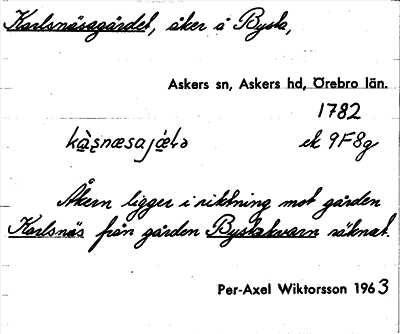 Karlsnäsagärdet, åker å Bysta,
Askers sn, Askers hd, Örebro län.
1782
ek 9F8g
Åkern ligger i riktning mot gården
Karlsnäs från gården Bystakvarn räknat.
Per-Axel Wiktorsson 1963